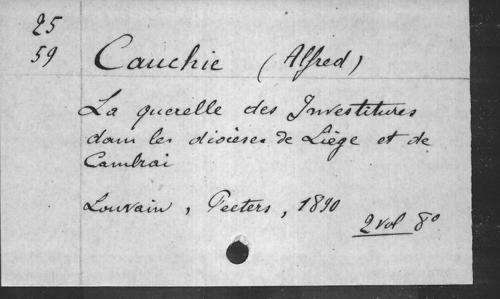 25
59
Cauchie (Alfred)
La querelle des Investitures
dans les diocèses de Liège et de
Cambrai
Louvain, Peeters, 1890
2 vol 8°